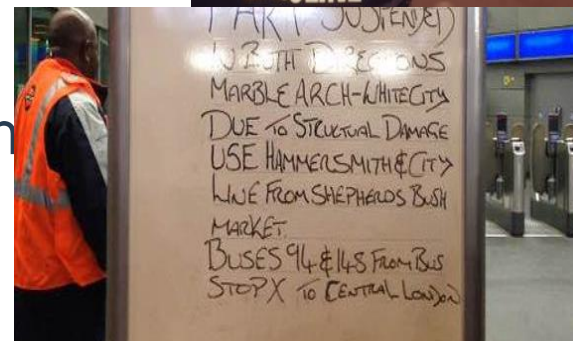 PART SUSPENDED
IN BOTH DIRECTIONS
MARBLE ARCH-WHITE CITY
DUE TO STRUCTUAL DAMAGE
USE HAMMERSMITH & CITY
LINE FROM SHEPHERDS BUSH
MARKET.
BUSES 94 & 148 FROM BUS
STOP X TO CENTRAL LONDON